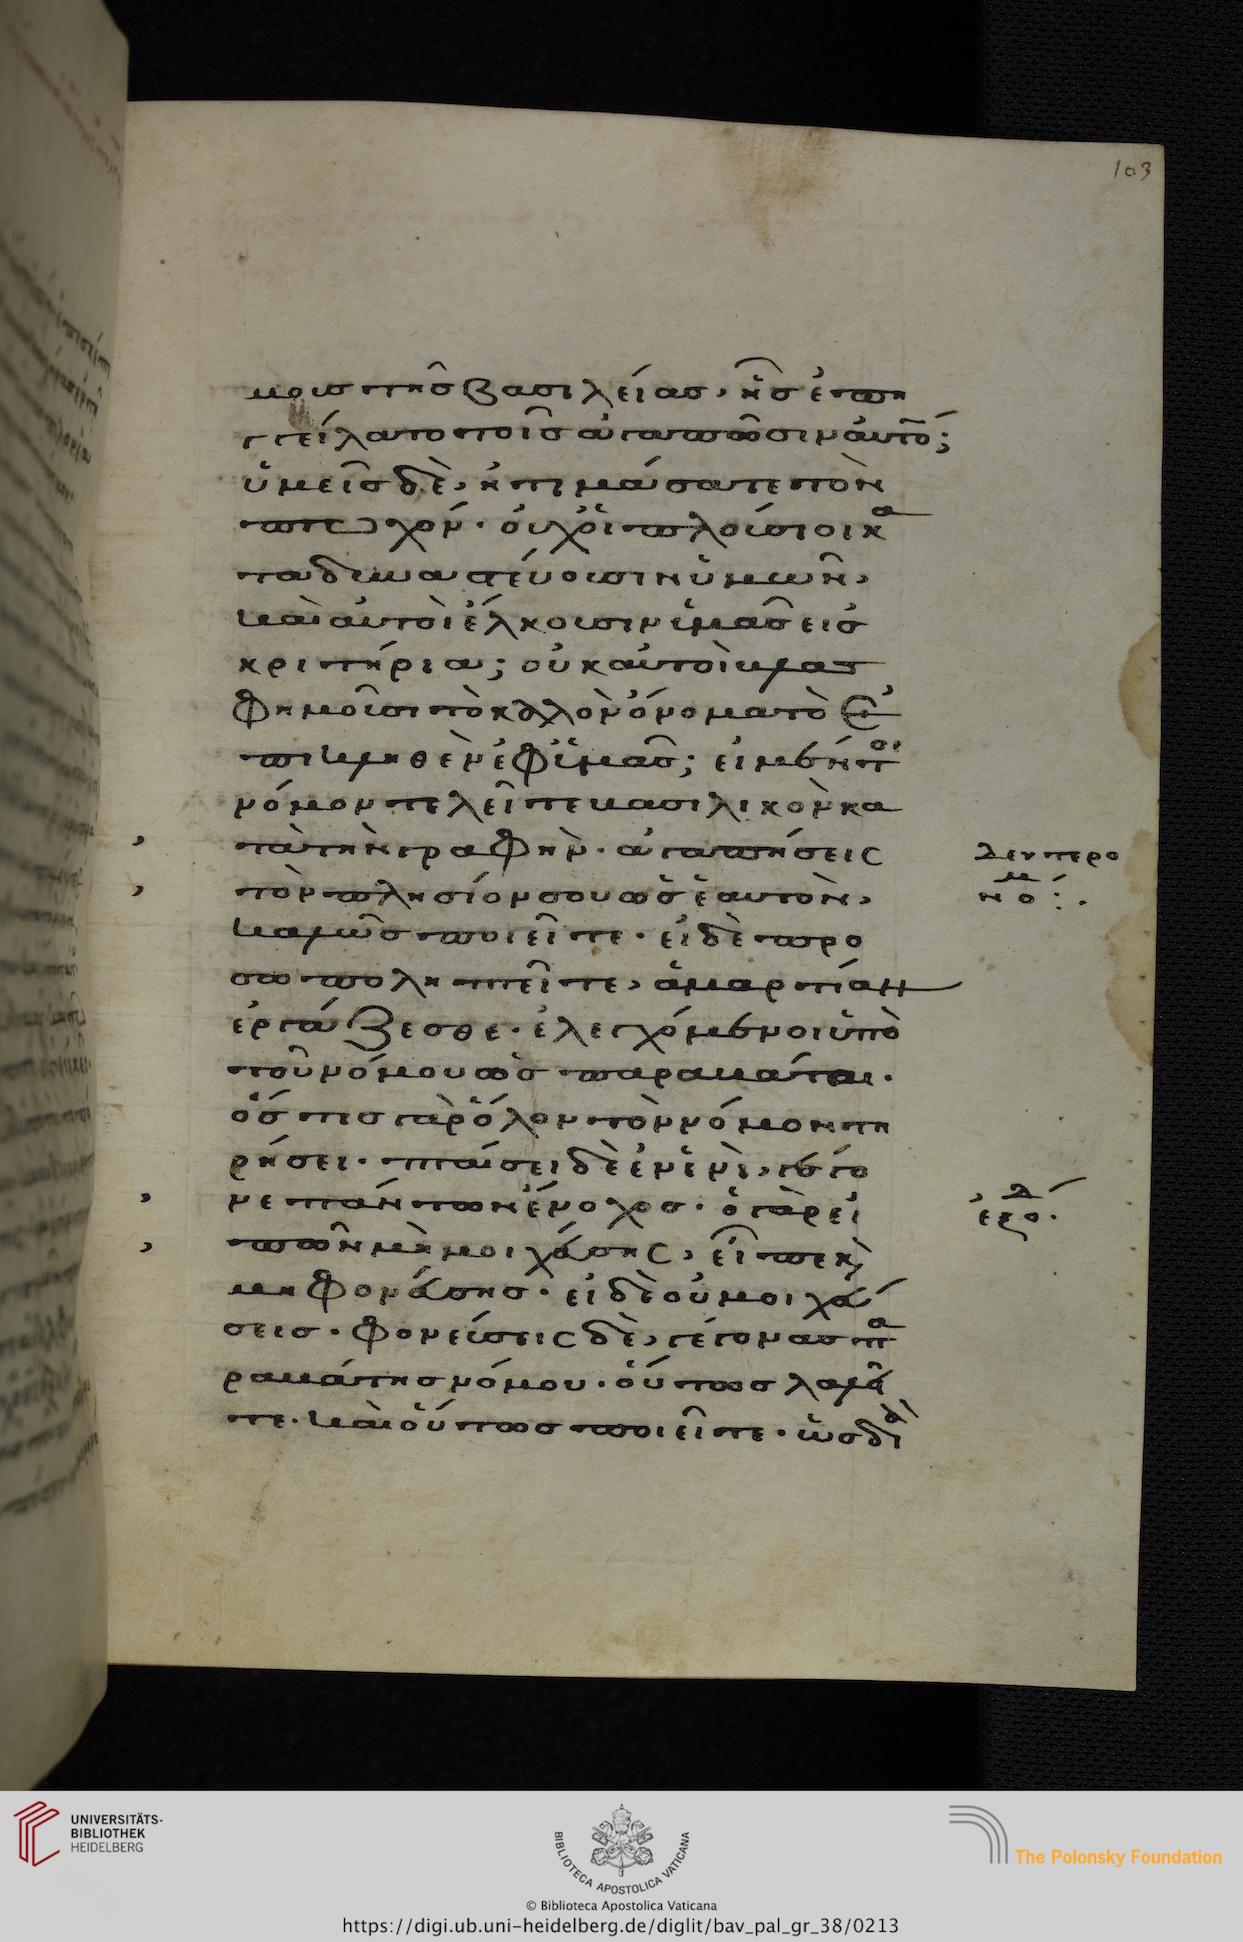 103
μους τῆς βασιλείας, ἧς ἐπη
γγείλατο τοῖς ἀγαπῶσιν αὐτό̄;
ὑμεῖς δὲ, ἠτιμάσατε τὸν
πτωχόν· οὐχ οἱ πλούσιοι κα
ταδυναστεύουσιν ὑμῶν,
καὶ αὐτοὶ ἕλκουσιν ὑμᾶς εἰς
κριτήρια; οὐκ αὐτοὶ βλασ
φημοῦσι τὸ καλὸν ὄνομα τὸ ἐ
πικληθὲν ἐφ' ὑμᾶς; εἰ μέντοι
νόμον τελεῖτε βασιλικὸν κα
τὰ τὴν γραφὴν· ἀγαπήσεις
τὸν πλησίον σου ὡς ἑαυτὸν,
καλῶς ποιεῖτε· εἰ δὲ προ
σωποληπτεῖτε, ἁμαρτίαν
ἐργάζεσθε· ἐλεγχόμενοι ὑπὸ
τοῦ νόμου ὡς παραβάται·
ὅστις γὰρ ὅλον τὸν νόμον τη
ρήσει· πταίσει δὲ ἐν ἑνὶ, γέγο
νε πάντων ἔνοχος· ὁ γὰρ εἰ
πὼν μὴ μοιχεύσῃς, εἶπε κὶ
μὴ φονεύσῃς· εἰ δὲ οὐ μοιχεύ
σεις· φονεύσεις δὲ, γέγονας πα
ραβάτης νόμου· οὕτως λαλεῖ
τε· καὶ οὕτως ποιεῖτε· ὡς διὰ
δευτερο
νομ
ἐξοδ
UNIVERSITÄTS-
BIBLIOTHEK
HEIDELBERG
BIBLIOTECA APOSTOLICA VATICANA
The Polonsky Foundation
© Biblioteca Apostolica Vaticana
https://digi.ub.uni-heidelberg.de/diglit/bav_pal_gr_38/0213